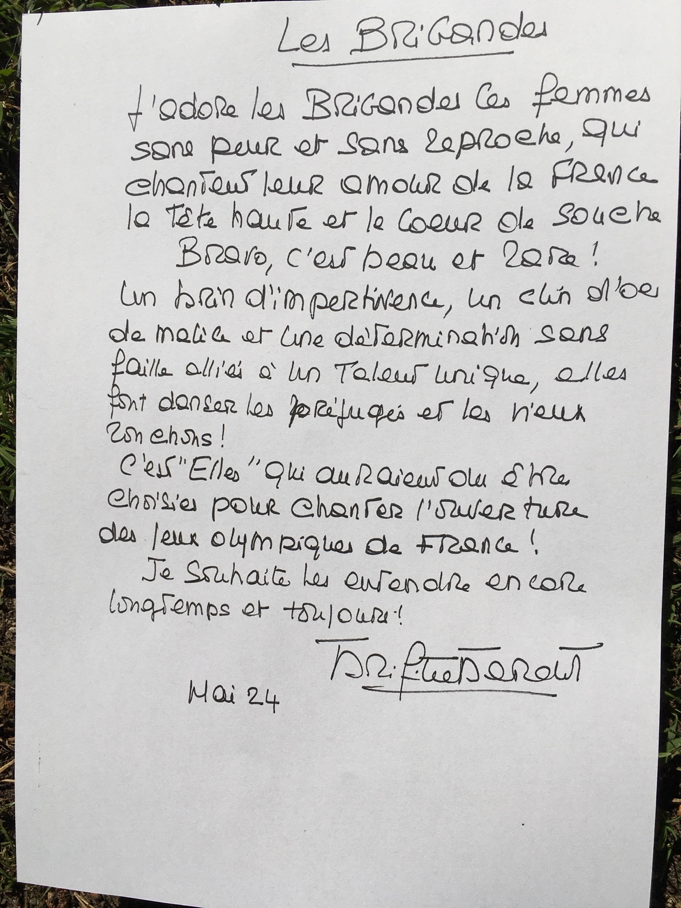 Les BRIGandes
J'adore les BRIGANDES Ces femmes
sans peur et sans reproche, qui
chantent leur amour de la FRANCE
la Tête haute et le Coeur de Souche
Bravo, c'est beau et rare !
Un brin d'impertinence, un clin d'oei
de malice et une détermination sans
faille alliés à un Talent unique, elles
font danser les préjugés et les vieux
ronchons !
C'est "Elles" qui auraient du être
choisies pour chanter l'ouverture
des Jeux olympiques de FRANCE !
Je souhaite les entendre encore
longtemps et toujours !
Mai 24